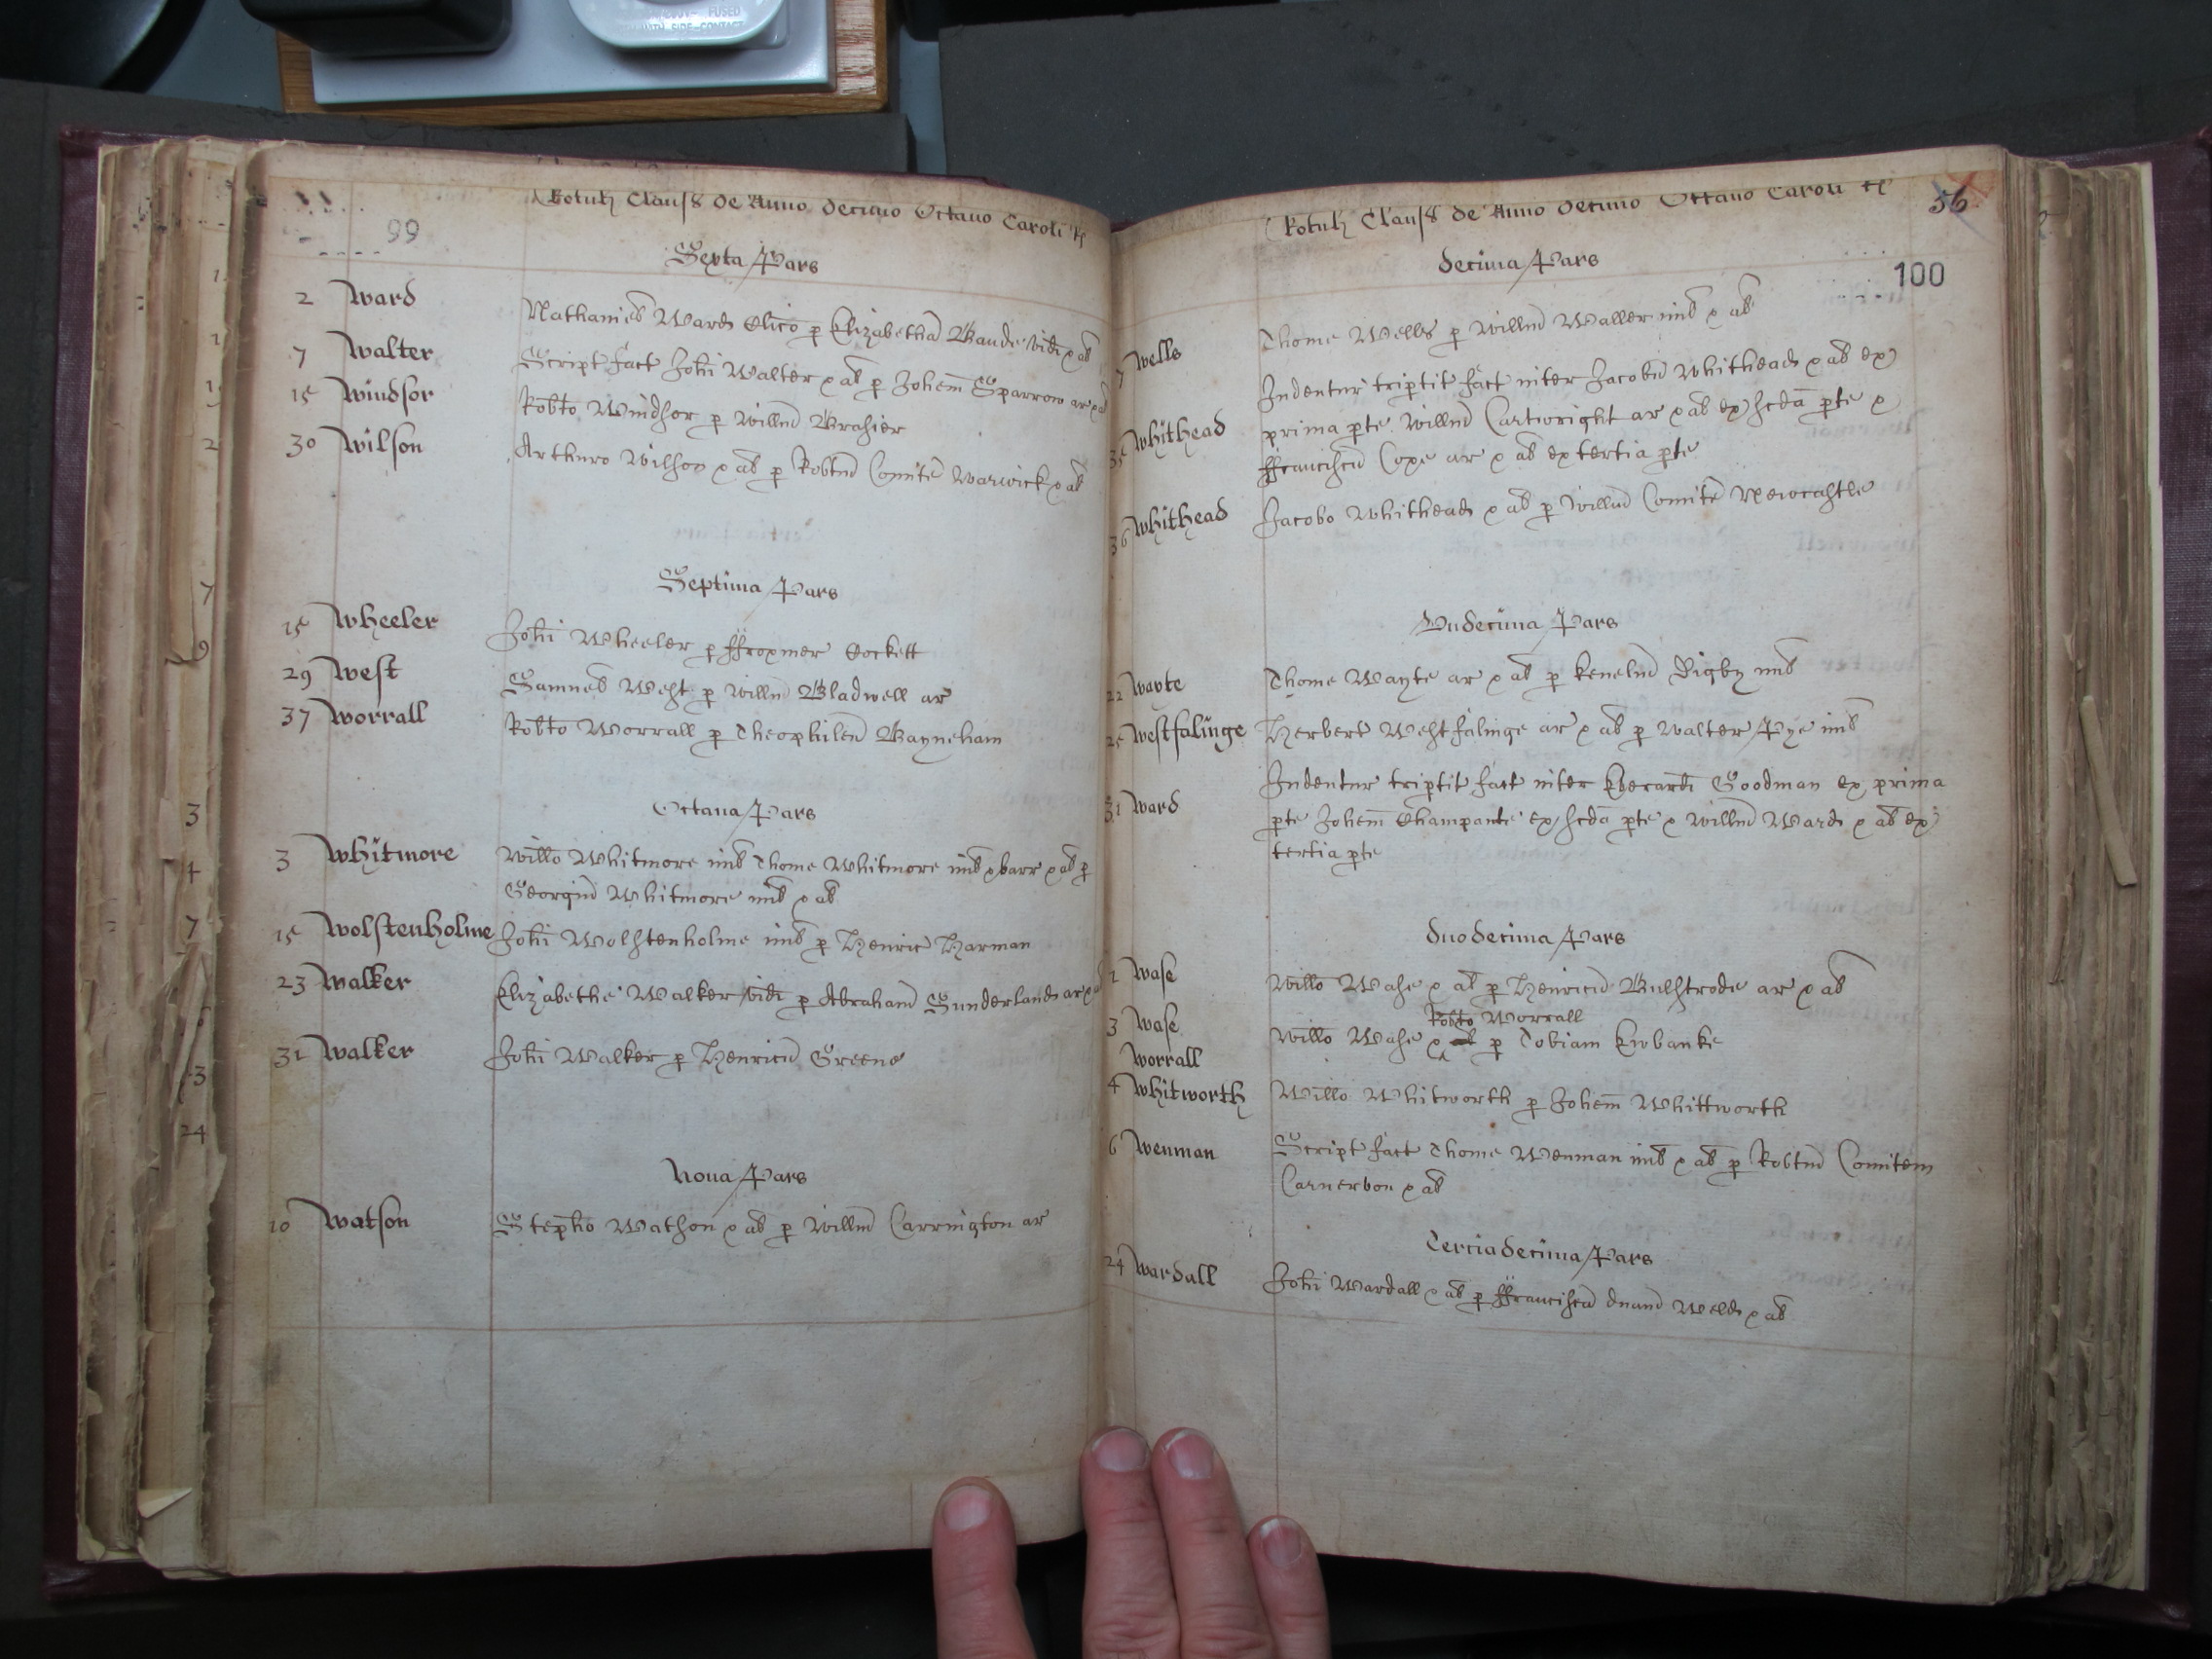 FUSED
WITH SIDE-CONTACT
Rotuli Claus de Anno decimo Octavo Caroli Rs
99
Sexta Pars
2 Ward Nathanieli Ward Clico p Elizabetham Gaude vid & al
7 Walter Script fact Johi Walter & al p Johem Sparrow ar & al
15 Windsor Robto Windsor p Willm Brasier
30 Wilson Arthuro Wilson & al p Robtm Comite Warwick & al
Septima Pars
15 Wheeler Johi Wheeler p ffroxmer Cockett
29 West Samueli West p Willm Bladwell ar
37 Worrall Robto Worrall p Theophilem Bayneham
Octava Pars
3 Whitmore Willo Whitmore mil Thome Whitmore mil & barr & al p
Georgiu Whitmore mil & al
15 Wolstenholme Johi Wolstenholme mil p Henric Harman
23 Walker Elizabethe Walker vid p Abraham Sunderland ar &
31 Walker Johi Walker p Henricu Greene
Nona Pars
10 Watson Stepho Watson & al p Willm Carrington ar
Rotuli Claus de Anno decimo Octavo Caroli Rs
56
decima Pars
100
7 Wells Thome Wells p Willm Waller mil & al
Indentur triptit fact inter Jacobu Whithead & al ex
35 Whithead prima pte Willm Cartwright ar & al ex scda pte &
ffranciscu Coxe ar & al ex tertia pte
36 Whithead Jacobo Whithead & al p Willm Comite Newcastle
Undecima Pars
22 Wayte Thome Wayte ar & al p Kenelm Digby mil
25 Westfalinge Herbert Westfalinge ar & al p Walter Pye mil
Indentur triptit fact inter Everard Goodman ex prima
31 Ward pte Johem Champante ex scda pte & Willm Ward & al ex
tertia pte
duodecima Pars
1 Wase Willo Wase & al p Henricu Bulstrode ar & al
Robto Worrall
3 Wase Willo Wase & al p Tobiam Ewbanke
Worrall
4 Whitworth Willo Whitworth p Johem Whittworth
6 Wenman Script fact Thome Wenman mil & al p Robtm Comitem
Carnerbon & al
Terciadecima Pars
24 Wardall Johi Wardall & al p ffranciscu dnam Weld & al